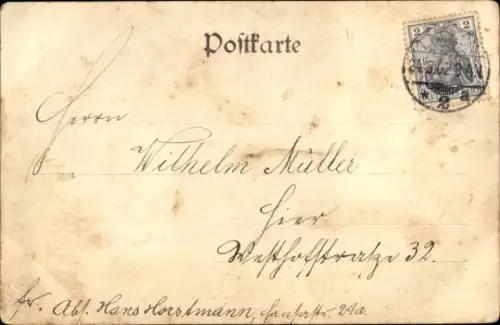 Postkarte
2 2
* 2 a
Herrn
Wilhelm Müller
Hier
Westhofstratze 32.
fr. Abs. Hans Horstmann, Hansastr. 29a.